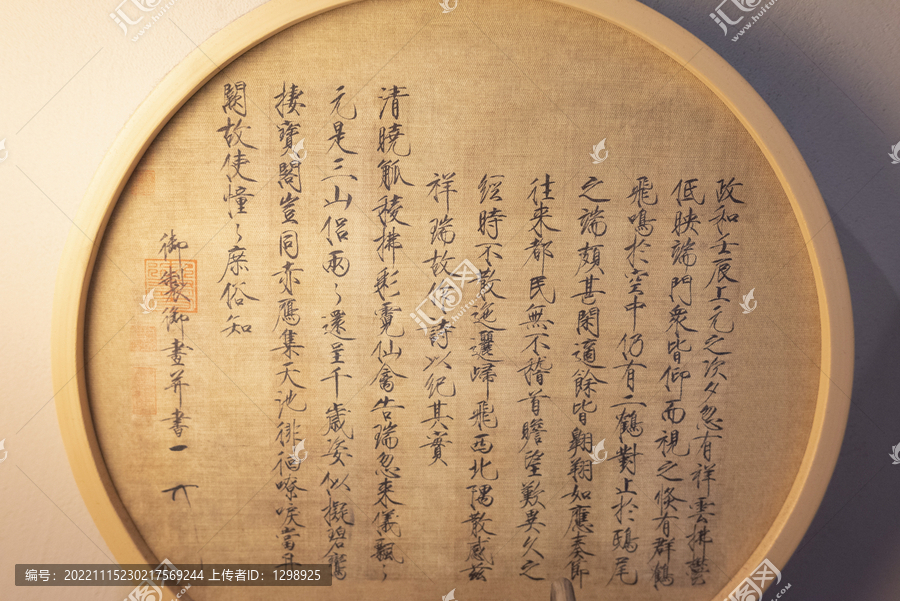 政和壬辰上元之次夕忽有祥雲拂欝
低映端門衆皆仰而視之倏有群鶴
飛鳴於空中仍有二鶴對止於鴟尾
之端頗甚閑適餘皆翱翔如應奏節
往来都民無不稽首瞻望歎異久之
經時不散迤邐歸飛西北隅散感兹
祥瑞故作詩以紀其實
清曉觚稜拂彩霓仙禽告瑞忽来儀飄〻
元是三山侶兩〻還呈千歲姿似擬碧鸞
捿寶閣豈同赤鴈集天池徘徊嘹唳當丹
闕故使憧〻庶俗知
御製御畫并書
编号：20221115230217569244 上传者ID：1298925